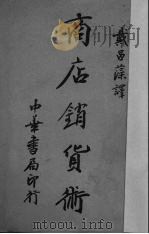 戴昌藻譯
商店銷貨術
中華書局印行